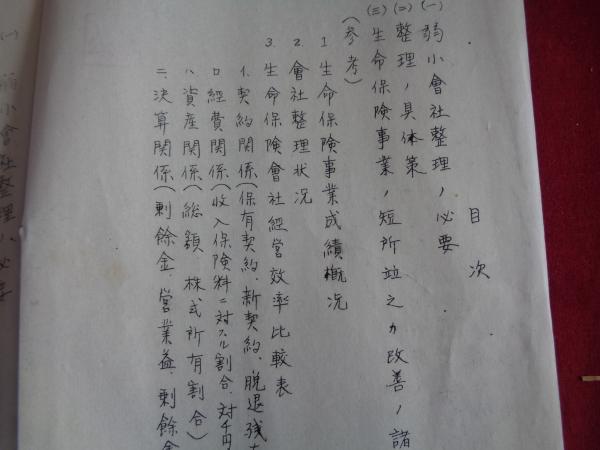 目次
(一)弱小會社整理ノ必要
(二)整理ノ具体策
(三)生命保険事業ノ短所竝之カ改善ノ諸
(参考)
1.生命保険事業成績概況
2.會社整理状況
3.生命保険會社経営效率比較表
イ.契約関係(保有契約、新契約、脱退残
ロ.経費関係(収入保険料ニ対スル割合、対千円
ハ.資産関係(総額、株式所有割合)
ニ.決算関係(剰餘金、営業益、剰餘金
(一)弱小會社整理ノ必要